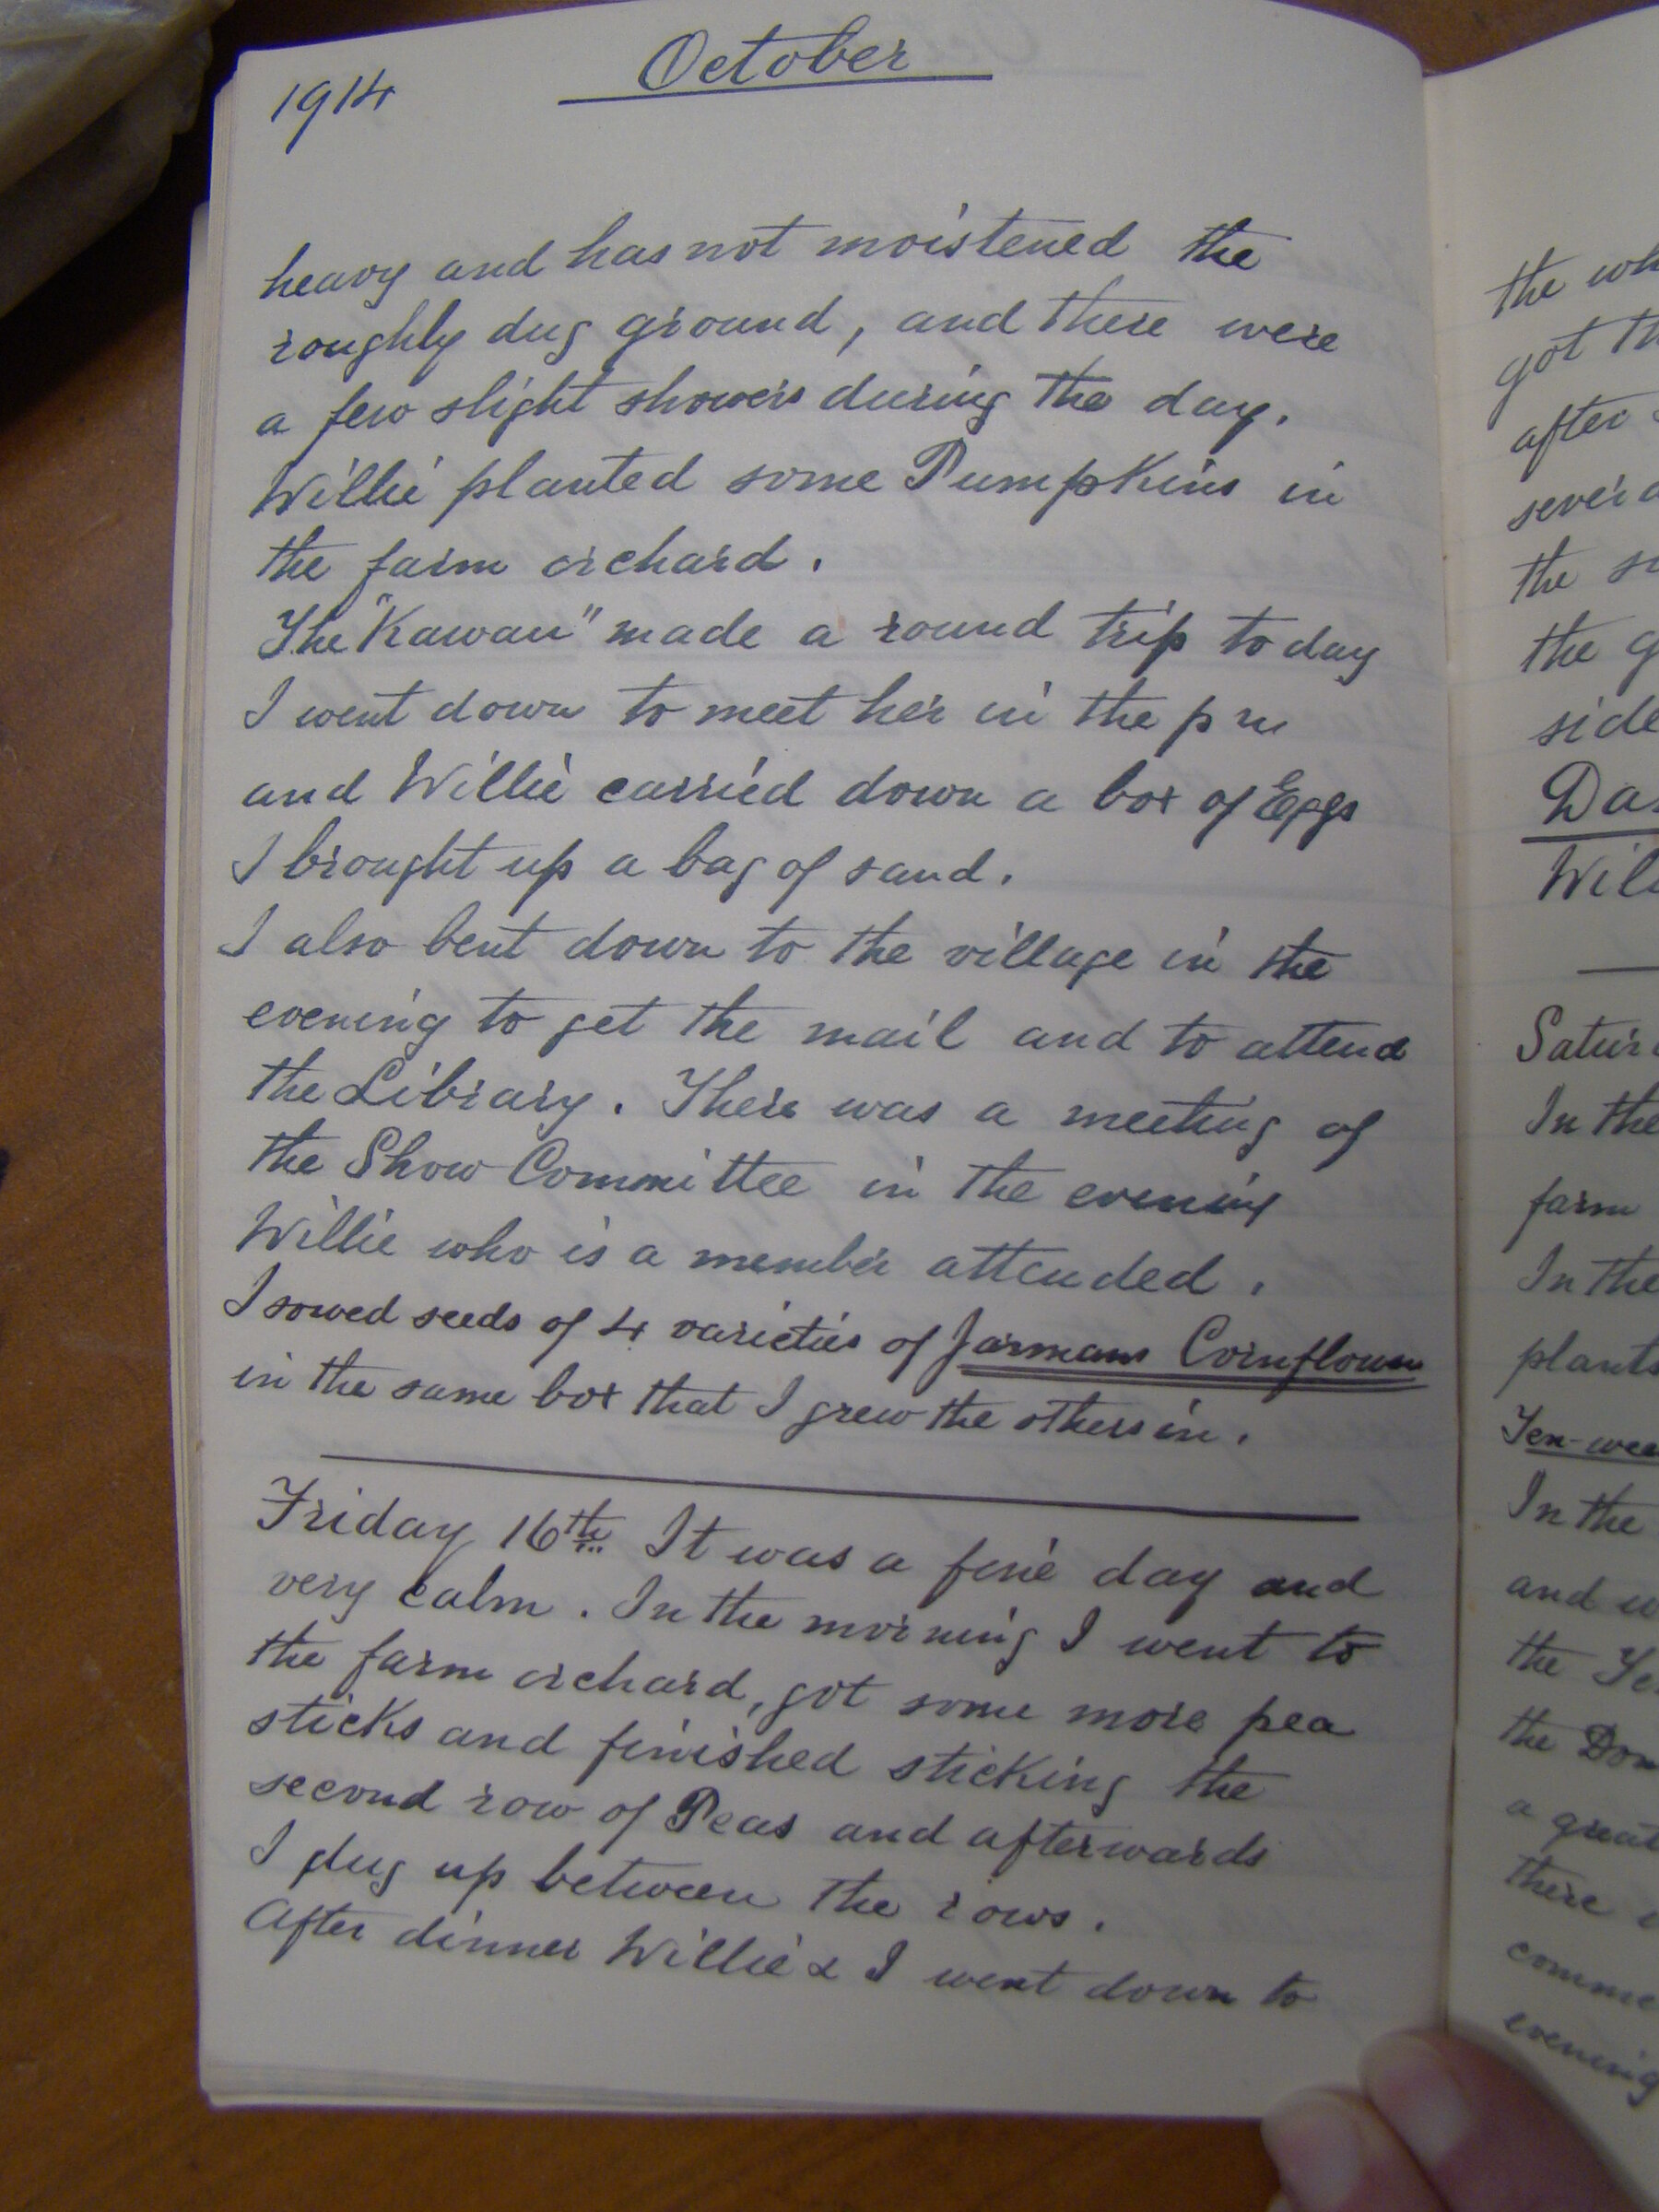 1914
October
heavy and has not moistened the
roughly dug ground, and there were
a few slight showers during the day.
Willie planted some Pumpkins in
the farm orchard.
The "Kawau" made a round trip to day
I went down to meet her in the pm
and Willie carried down a box of Eggs
I brought up a bag of sand.
I also bent down to the village in the
evening to get the mail and to attend
the Library. There was a meeting of
the Show Committee in the evening
Willie who is a member attended.
I sowed seeds of 4 varieties of Jarmans Cornflowers
in the same box that I grew the others in.
Friday 16th It was a fine day and
very calm. In the morning I went to
the farm orchard, got some more pea
sticks and finished sticking the
second row of Peas and afterwards
I dug up between the rows.
After dinner Willie & I went down to
the
got
after
the
the
side
Satur
In the
farm
In the
plants
Ten-wee
In the
and
the
the
a great
there
evening